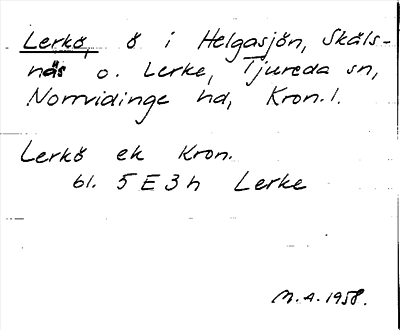 Lerkö, ö i Helgasjön, Skäls-
näs o. Lerke, Tjureda sn,
Norrvidinge hd, Kron.l.
Lerkö ek Kron.
bl. 5 E 3 h Lerke
M.A. 1958.